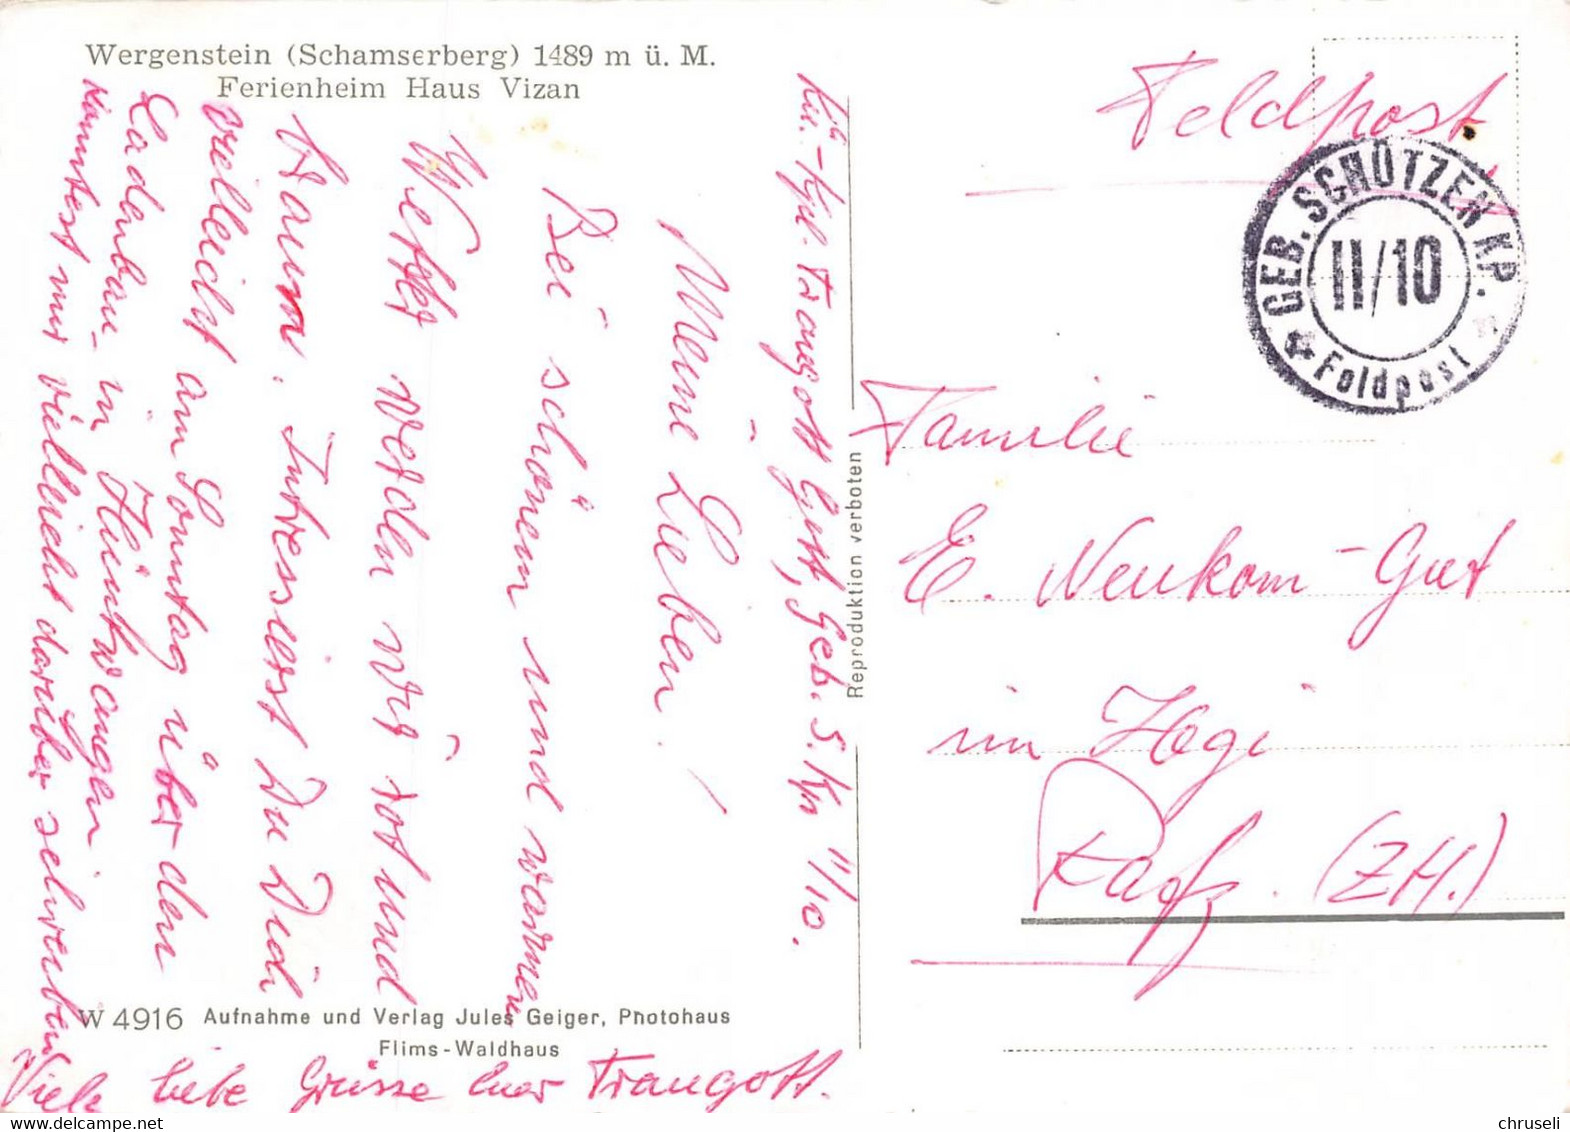 Wergenstein (Schamserberg) 1489 m ü. M.
Ferienheim Haus Vizan
Traugott Gut, Geb. S. Kp II/10.
Meine Lieben!
Bei schönem und warmen
Wetter werden wir rot und
braun. Intressierst Du Dich
vielleicht am Sonntag über den
Ladenbau in Hüntwangen
könntest mir vielleicht darüber schreiben
Viele liebe Grüsse Euer Traugott.
W 4916 Aufnahme und Verlag Jules Geiger, Photohaus
Flims-Waldhaus
Reproduktion verboten
Feldpost
GEB. SCHÜTZEN KP.
II/10
Feldpost
Familie
E. Neukom-Gut
im Hegi
Rafz. (ZH.)
chruseli